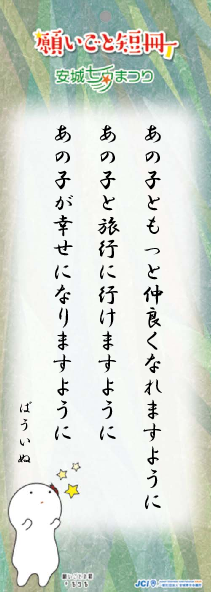 願いごと短冊
安城七夕まつり
あの子ともっと仲良くなれますように
あの子と旅行に行けますように
あの子が幸せになりますように
ばういぬ
JCI